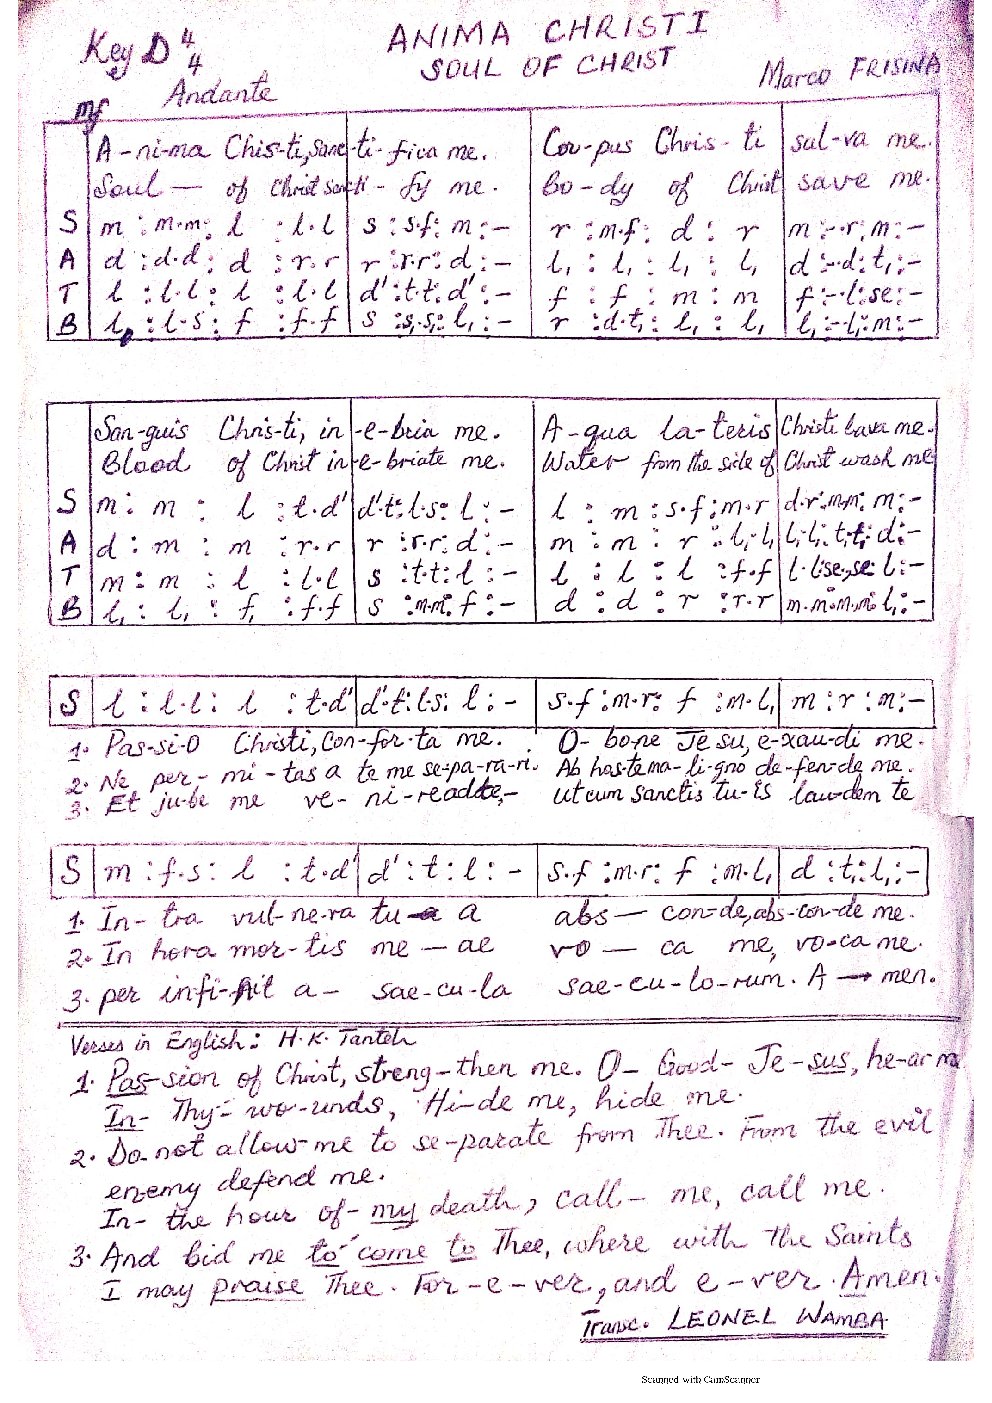 ANIMA CHRISTI
Key D 4/4
SOUL OF CHRIST
Marco FRISINA
Andante
mf
A-ni-ma Chis-ti, sanc-ti-fica me. Cor-pus Chris-ti sal-va me.
Soul — of Christ sancti-fy me. Bo-dy of Christ save me.
S m : m.m: l : l.l s : s.f: m : – r : m.f: d : r m : -.r: m : –
A d : d.d: d : r.r r : r.r: d : – l, : l, : l, : l, d : -.d: t, : –
T l : l.l: l : l.l d' : t.t: d' : – f : f : m : m f : -.l: se : –
B l, : l.s : f : f.f s : s,.s,: l, : – r : d.t, : l, : l, l, : -.l,: m : –
San-guis Chris-ti, in-e-bria me. A-qua la-teris Christi lava me.
Blood of Christ in-e-briate me. Water from the side of Christ wash me
S m : m : l : t.d' d'.t: l.s: l : – l : m : s.f : m.r d.r: m.m: m : –
A d : m : m : r.r r : r.r: d : – m : m : r : l,.l, l,.l,: t,.t,: d : –
T m : m : l : l.l s : t.t: l : – l : l : l : f.f l.l: se.se: l : –
B l, : l, : f, : f.f s : m.m: f : – d : d : r : r.r m.m: m.m: l, : –
S l : l.l: l : t.d' d'.t: l.s: l : – s.f : m.r: f : m.l, m : r : m : –
1. Pas-si-o Christi, con-for-ta me. O- bo-ne Je su, e-xau-di me.
2. Ne per-mi-tas a te me se-pa-ra-ri. Ab hos-te ma-li-gno de-fen-de me.
3. Et ju-be me ve-ni-re ad te,- ut cum sanctis tu-is lau-dem te
S m : f.s : l : t.d' d' : t : l : – s.f : m.r: f : m.l, d : t, : l, : –
1. In-tra vul-ne-ra tu-a a abs— con-de, abs-con-de me.
2. In hora mor-tis me — ae vo — ca me, vo-ca me.
3. per infi-nit a- sae-cu-la sae-cu-lo-rum. A → men.
Verses in English: H.K. Tanteh
1. Pas-sion of Christ, streng-then me. O- Good- Je-sus, he-ar me
In- Thy- wo-unds, Hi-de me, hide me.
2. Do-not allow-me to se-parate from Thee. From the evil
enemy defend me.
In- the hour of- my death, call- me, call me.
3. And bid me to come to Thee, where with the Saints
I may praise Thee. For-e-ver, and e-ver. Amen.
Transc. LEONEL WAMBA
Scanned with CamScanner